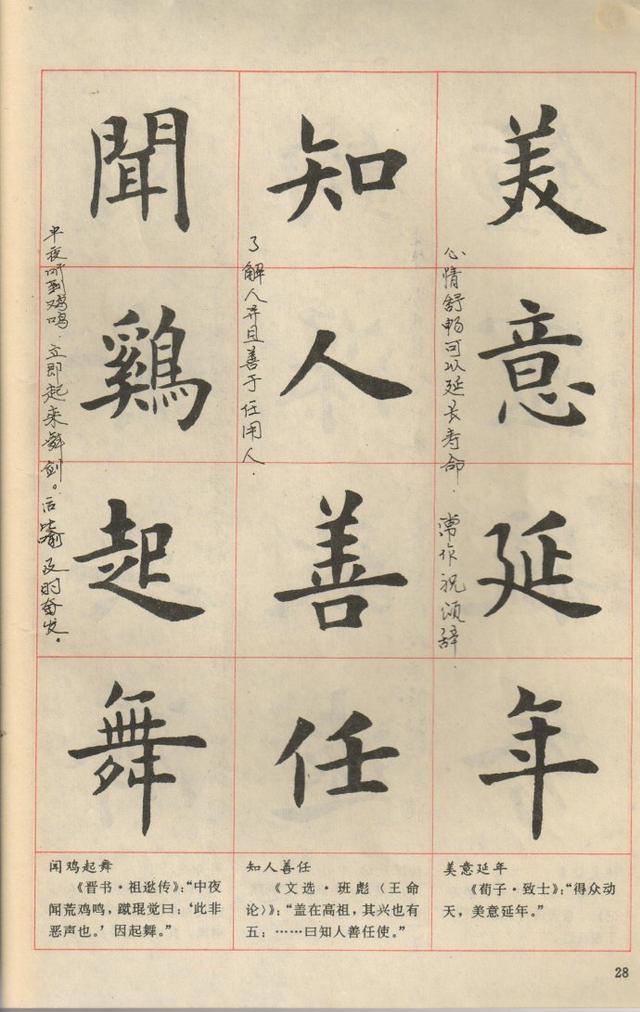 美意延年
心情舒畅可以延长寿命.常作祝颂辞.
知人善任
了解人并且善于任用人.
聞鷄起舞
半夜听到鸡鸣.立即起来舞剑。后比喻及时奋发。
美意延年
《荀子·致士》:“得众动
天,美意延年。”
知人善任
《文选·班彪(王命
论)》:“盖在高祖,其兴也有
五:……曰知人善任使。”
闻鸡起舞
《晋书·祖逖传》:“中夜
闻荒鸡鸣,蹴琨觉曰:‘此非
恶声也。’因起舞。”
28